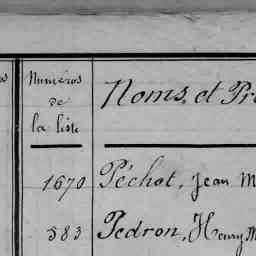 Numéros
de
la liste
Noms, et Pr
1670 Péchot, Jean M
583 Pedron, Henry M